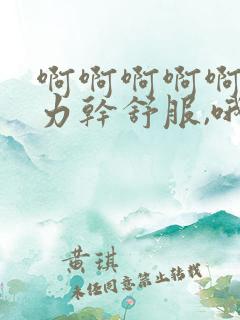 啊啊啊啊啊
力幹舒服,哦
黄琪
未经同意禁止转载